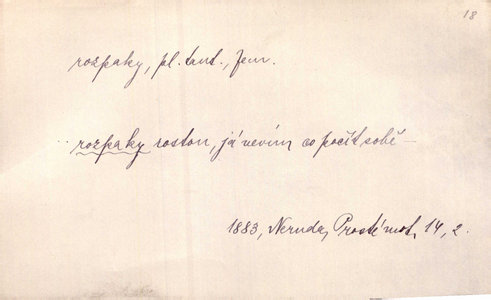 18
rozpaky, pl. tant., fem.
rozpaky rostou, já nevím co počít sobě –
1883, Neruda, Prosté mot. 14, 2.